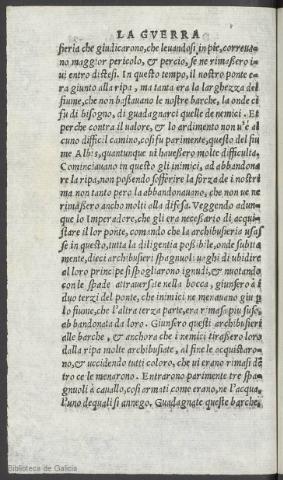 LA GVERRA
sieria che giudicarono, che leuandosi in pie, correuano
no maggior pericolo, & percio, se ne rimasero iui
ui entro distesi. In questo tempo, il nostro ponte era
ra giunto alla ripa, ma tanta era la larghezza del
fiume, che non bastauano le nostre barche, la onde ci
fu di bisogno, di guadagnarci quelle de nemici. Et
perche contra il ualore, & lo ardimento non u'è al
cuno difficil camino, cosi fu parimente, questo del fiu
me Albis, quantunque ui hauessero molte difficultà.
Cominciauano in questo gli inimici, ad abbandona
re la ripa, non possendo sofferire la forza de i nostri
ma non tanto però la abbandonauano, che non ue ne
rimãsero ancho molti alla difesa. Veggendo adun
que lo Imperadore, che gli era necessario di acqui
stare il lor ponte, comando che la archibuseria usas
se in questo, tutta la diligentia possibile, onde subita
mente, dieci archibusieri spagnuoli uaghi di ubidire
al loro principe si spogliarono ignudi, & nuotando
con le spade attrauersate nella bocca, giunsero à i
duo terzi del ponte, che inimici ne menauano giu p
lo fiume, che l'altra terza parte, era rimasa piu suso,
abbandonata da loro. Giunsero questi archibusieri
alle barche, & anchora che i nemici tirassero loro
dalla ripa molte archibusate, al fine le acquistaro
no, & uccidendo tutti coloro, che ui erano rimasi dẽ
tro ce le menarono. Entrarono parimente tre spa
gnuoli à cauallo, cosi armati come erano, ne l'acqua,
l'uno de quali si annego. Guadagnate queste barche,
Biblioteca de Galicia